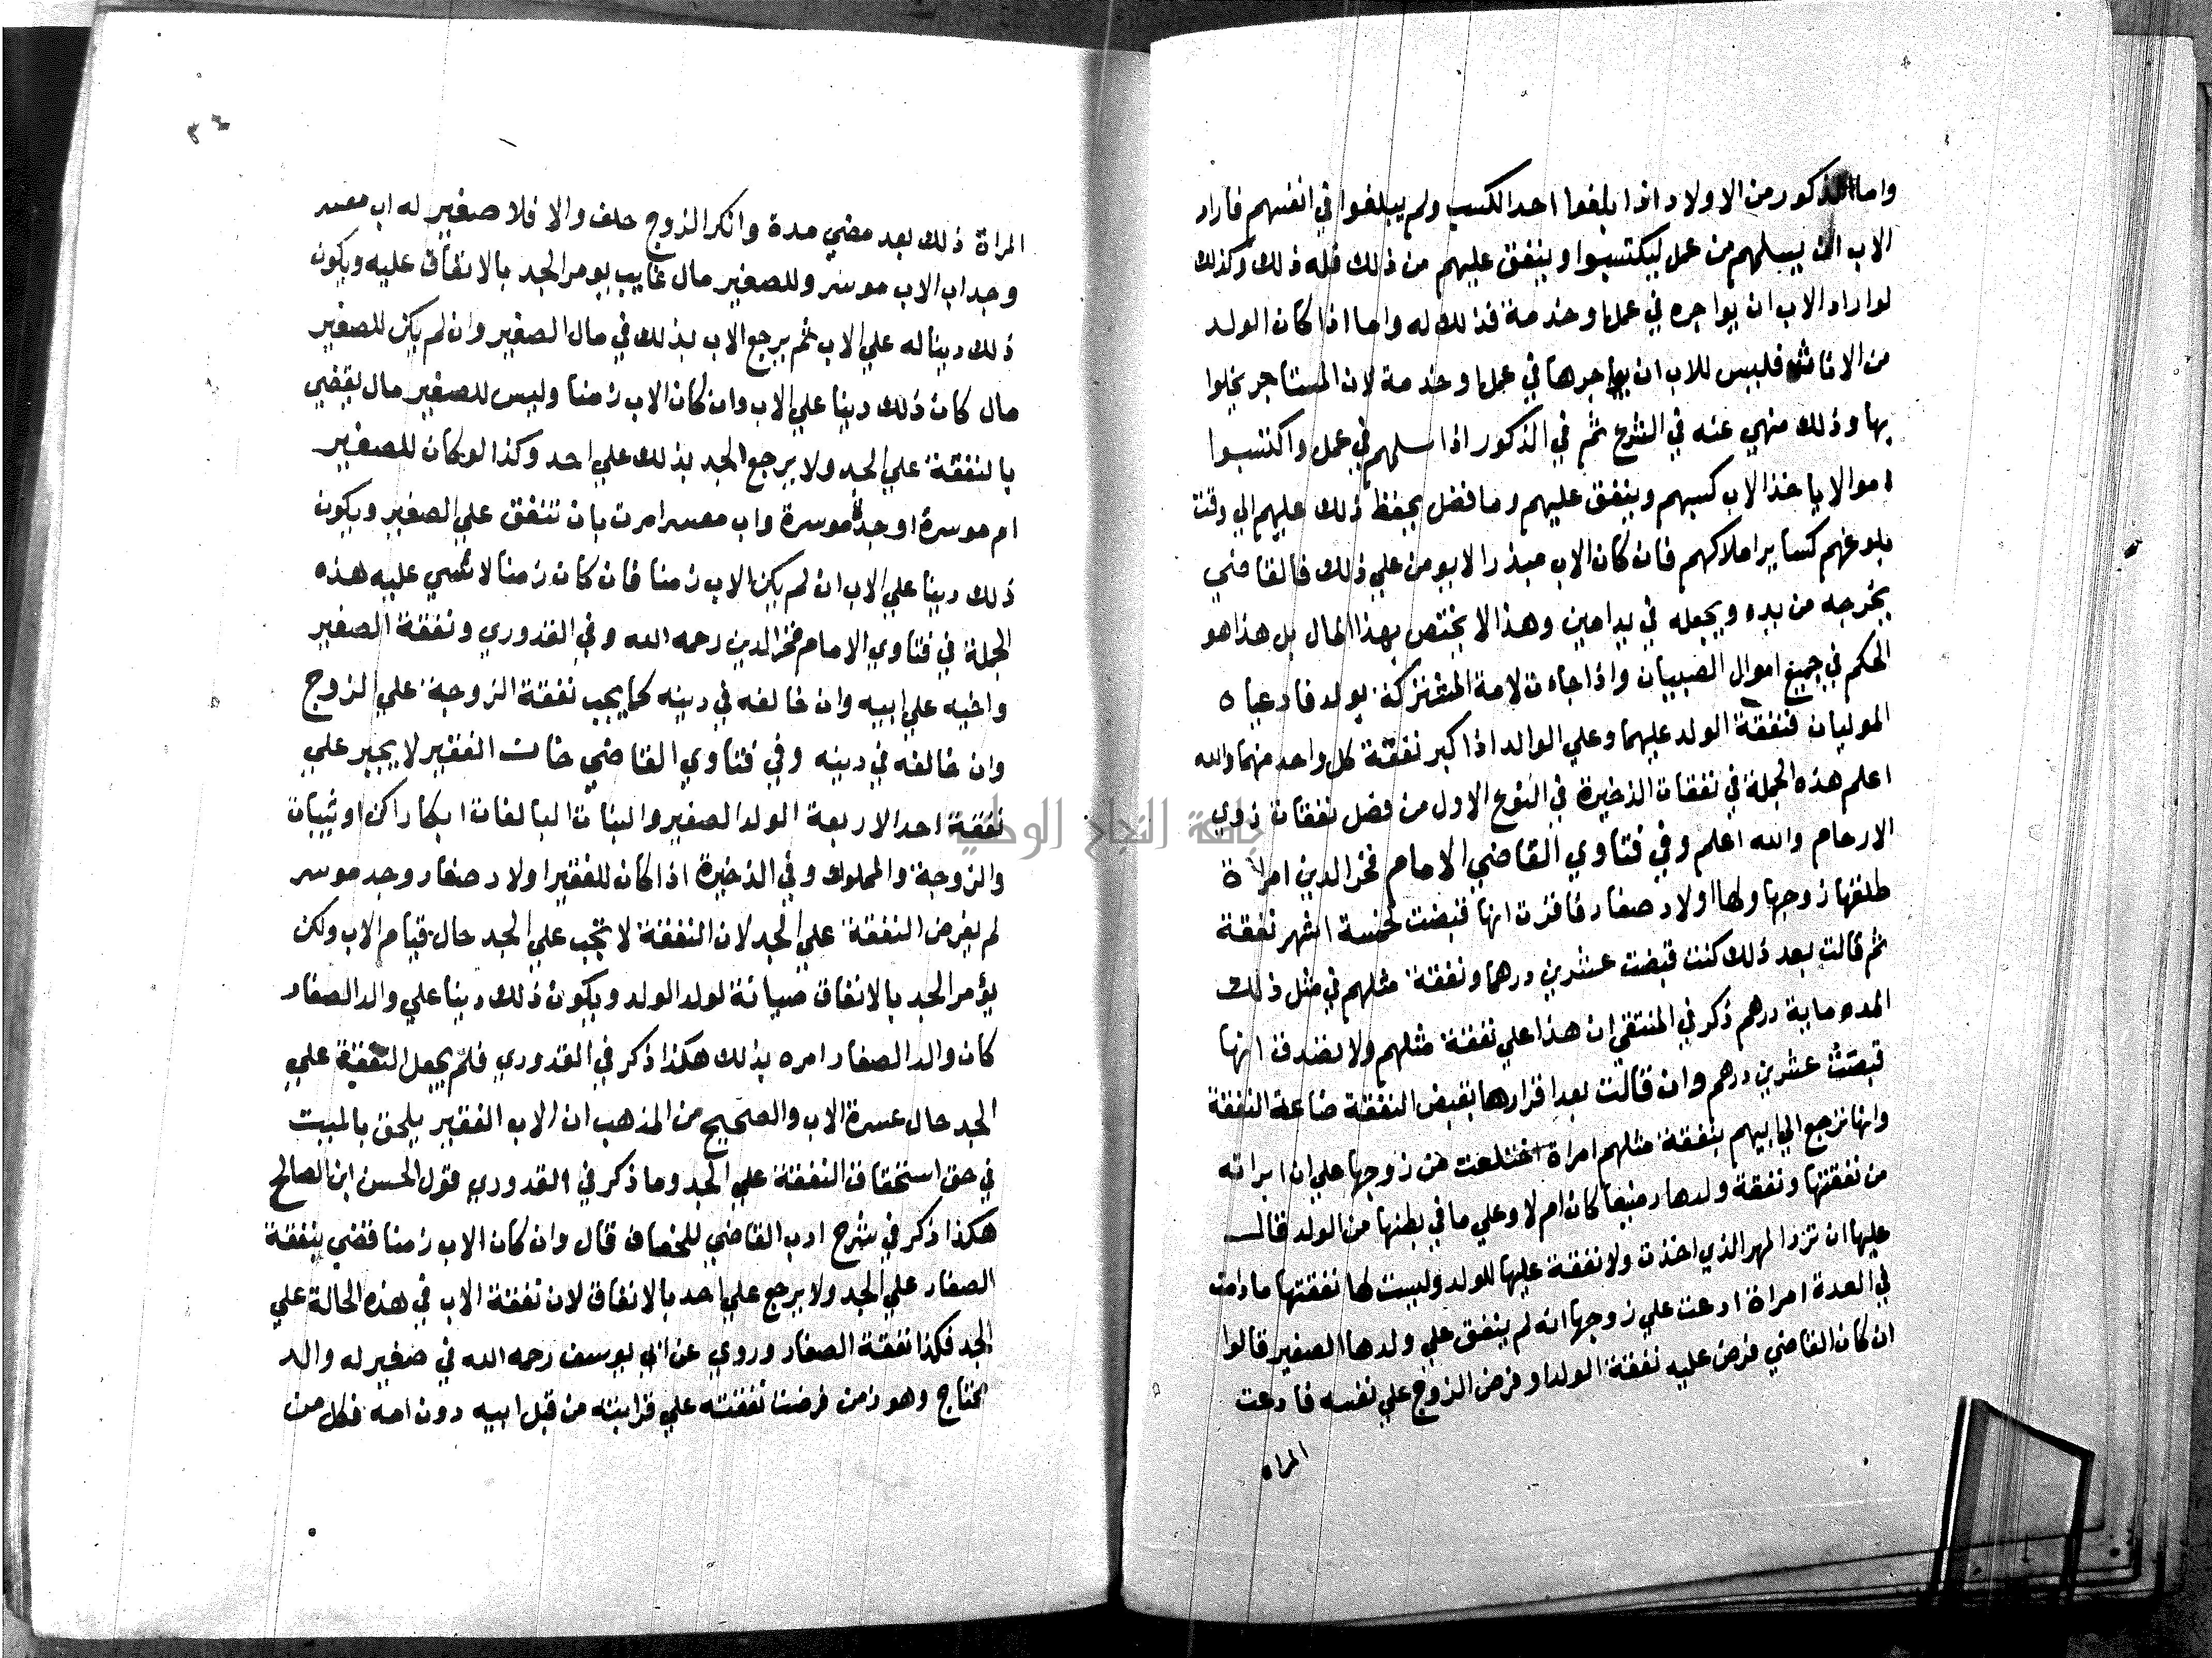 واما الذكور من الاولاد اذا بلغوا احد الكسب ولم يبلغوا في انفسهم فاراد
الاب ان يسلمهم من عمل ليكتسبوا وينفق عليهم من ذلك فله ذلك وكذلك
لو اراد الاب ان يواجره في عمل او خدمة فذلك له واما اذا كان الولد
من الاناث فليس للاب ان يواجرها في عمل او خدمة لان المستاجر يخلوا
بها وذلك منهي عنه في الشرع ثم في الذكور اذا سلمهم في عمل واكتسبوا
اموالا ياخذ الاب كسبهم وينفق عليهم وما فضل يحفظ ذلك عليهم الي وقت
بلوغهم كساير املاكهم فان كان الاب مبذرا لا يومن علي ذلك فالقاضي
يخرجه من يده ويجعله في يد امين وهذا لا يختص بهذا المال بل هذا هو
الحكم في جميع اموال الصبيان واذا جاءت الامة المشتركة بولد فادعياه
الموليان فنفقة الولد عليهما وعلي الولد اذا كبر نفقة كل واحد منهما والله
اعلم هذه الجملة في نفقات الذخيرة في النوع الاول من فصل نفقات ذوي
الارحام والله اعلم وفي فتاوي القاضي الامام فخر الدين امراة
طلقها زوجها ولها اولاد صغار فاقرت انها قبضت لخمسة اشهر نفقة
ثم قالت بعد ذلك كنت قبضت عشرين درهما ونفقة مثلهم في مثل ذلك
المده ماية درهم ذكر في المنتقي ان هذا علي نفقة مثلهم ولا تصدق انها
قبضت عشرين درهم وان قالت بعد اقرارها بقبض النفقة ضاعة النفقة
وانها ترجع الي ابيهم بنفقة مثلهم امراة اختلعت من زوجها علي ان ابراته
من نفقتها ونفقة ولدها رضيعا كان ام لا وعلي ما في بطنها من الولد قال
عليها ان ترد المهر الذي اخذت ولا نفقة عليها للولد وليست لها نفقتها ما دامت
في العدة امراة ادعت علي زوجها انه لم ينفق علي ولدها الصغير قالوا
ان كان القاضي فرض عليه نفقة الولد او فرض الزوج علي نفسه فادعت
المراه
المراة ذلك بعد مضي مدة وانكر الزوج حلف والا فلا صغير له اب معسر
وجد اب الاب موسر وللصغير مال غايب يومر الجد بالانفاق عليه ويكون
ذلك دينا له علي الاب ثم يرجع الاب بذلك في مال الصغير وان لم يكن للصغير
مال كان ذلك دينا علي الاب وان كان الاب زمنا وليس للصغير مال يقضي
بالنفقة علي الجد ولا يرجع الجد بذلك علي احد وكذا لو كان للصغير
ام موسرة او جدة موسرة واب معسر امرت بان تنفق علي الصغير ويكون
ذلك دينا علي الاب ان لم يكن الاب زمنا فان كان زمنا لا شي عليه هذه
الجملة في فتاوي الامام فخر الدين رحمه الله وفي القدوري ونفقة الصغير
واخيه علي ابيه وان خالفه في دينه كما يجب نفقة الزوجة علي الزوج
وان خالفه في دينه وفي فتاوي القاضي خان الفقير لا يجبر علي
نفقة احد الا ربعة الولد الصغير والبنات البالغات ابكارا كن او ثيبات
والزوجة والمملوك وفي الذخيرة اذا كان للفقير اولاد صغار وجد موسر
لم يفرض النفقة علي الجد لان النفقة لا تجب علي الجد حال قيام الاب ولكن
يؤمر الجد بالانفاق صيانة لولد الولد ويكون ذلك دينا علي والد الصغار
كان والد الصغار امره بذلك هكذا ذكر في القدوري فلم يجعل النفقة علي
الجد حال عسرة الاب والصحيح من المذهب ان الاب الفقير يلحق بالميت
في حق استحقاق النفقة علي الجد وما ذكر في القدوري قول الحسن ابن الصالح
هكذا ذكر في شرح ادب القاضي للخصاف قال وان كان الاب زمنا قضي بنفقة
الصغار علي الجد ولا يرجع علي احد بالانفاق لان نفقة الاب في هذه الحالة علي
الجد فكذا نفقة الصغار وروي عن ابي يوسف رحمه الله في صغير له والد
محتاج وهو زمن فرضت نفقته علي قرابته من قبل ابيه دون امه فكل من
جامعة النجاح الوطنية